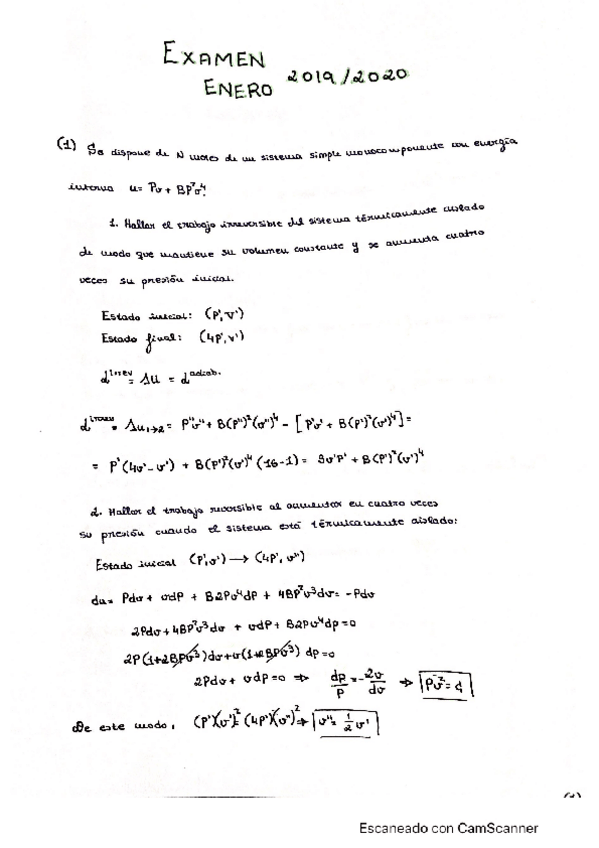 EXAMEN
ENERO 2019/2020
(1) Se dispone de N moles de un sistema simple monocomponente con energía
interna u= Pv + BP²v⁴.
1. Hallar el trabajo irreversible del sistema térmicamente aislado
de modo que mantiene su volumen constante y se aumenta cuatro
veces su presión inicial.
Estado inicial: (P', v')
Estado final: (4P', v')
d^irrev = Δu = d^adiab.
d^irrev = Δu₁→₂ = P''v'' + B(P'')²(v'')⁴ - [P'v' + B(P')²(v')⁴] =
= P'(4v'-v') + B(P')²(v')⁴ (16-1) = 3v'P' + B(P')²(v')⁴
2. Hallar el trabajo reversible al aumentar en cuatro veces
su presión cuando el sistema está térmicamente aislado:
Estado inicial (P', v') → (4P', v'')
du= Pdv + vdP + B2Pv⁴dP + 4BP²v³dv = -Pdv
2Pdv + 4BP²v³dv + vdP + B2Pv⁴dp = 0
2P(1+2BPv³)dv + v(1+2BPv³) dp = 0
2Pdv + vdP = 0 ⇒ dp/P = -2v/dv ⇒ Pv² = d
De este modo, (P')(v')² = (4P')(v'')² ⇒ v'' = 1/2 v'
Escaneado con CamScanner